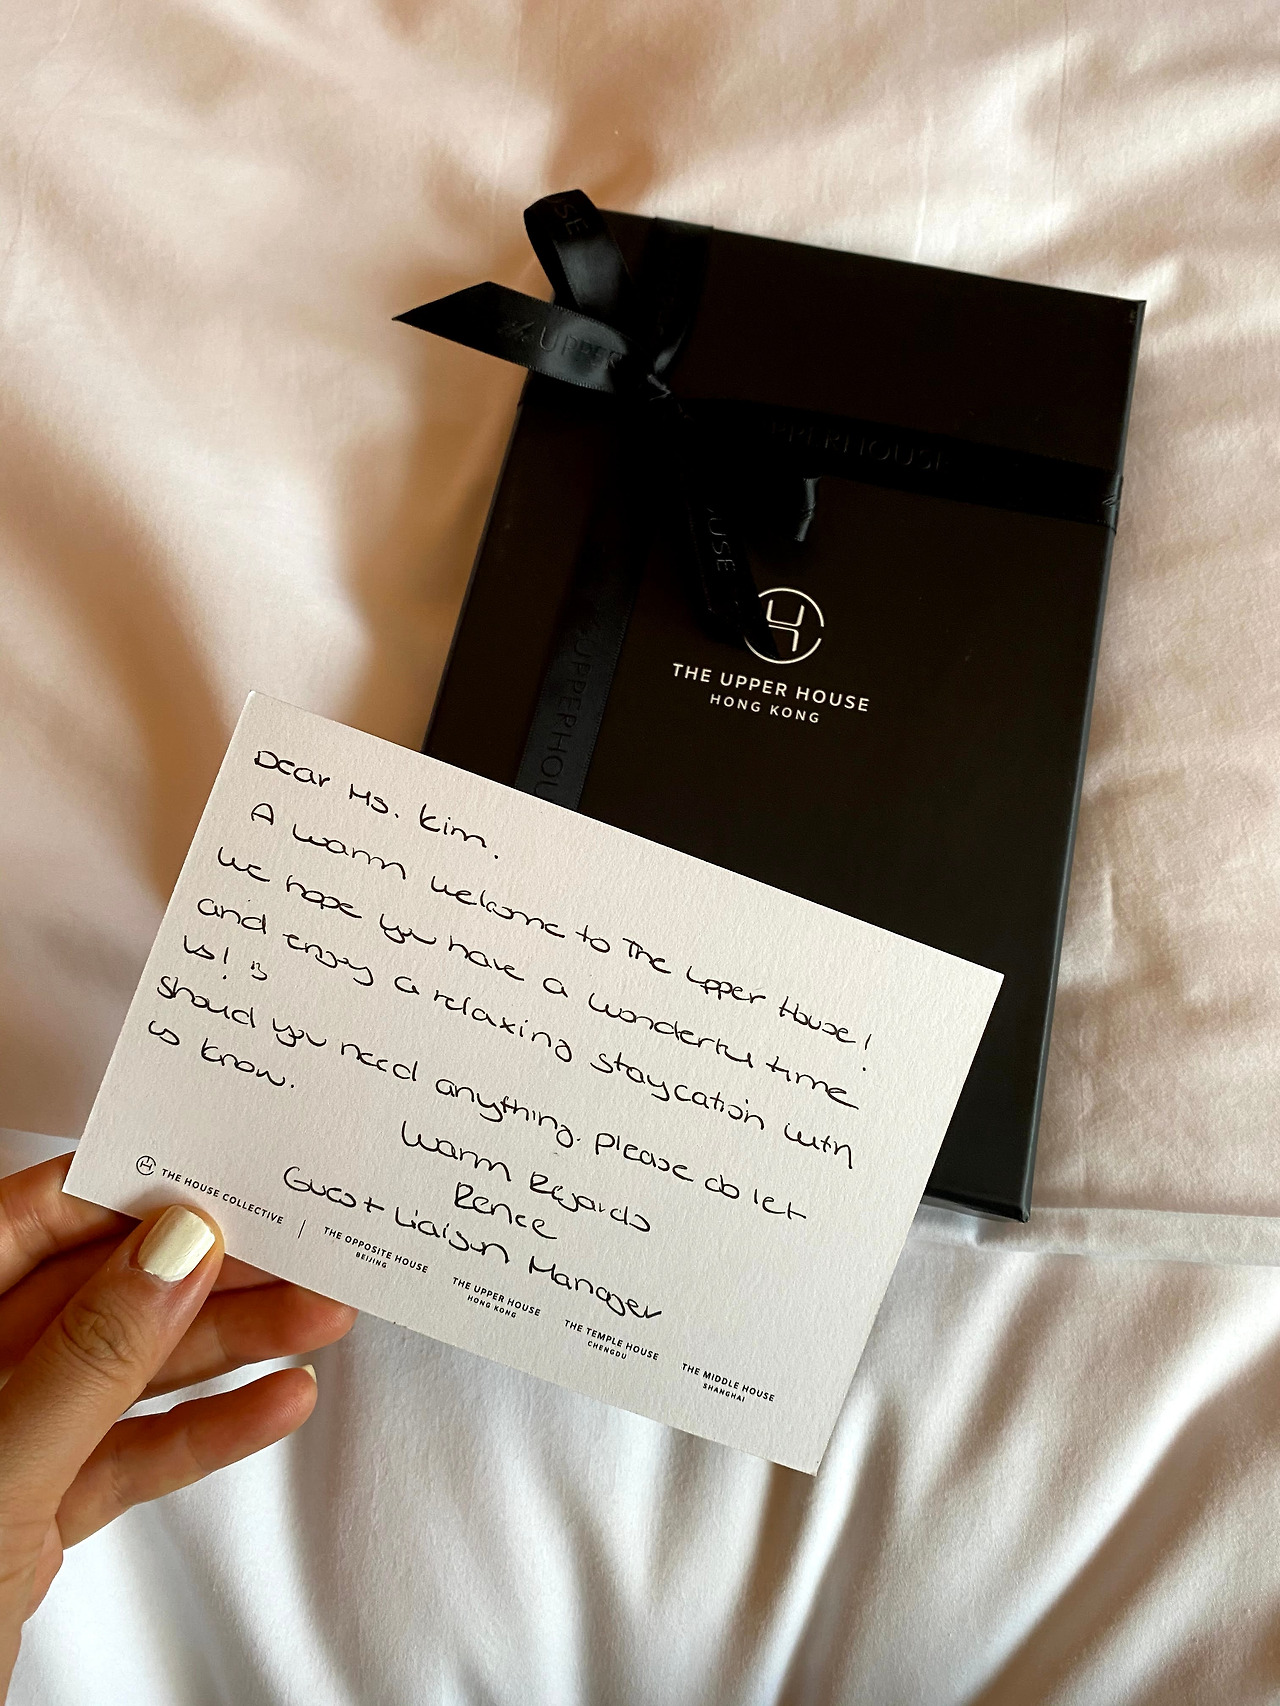 USE
the UPPER
PPERHOUSE
OUSE
UPPERHOU
THE UPPER HOUSE
HONG KONG
Dear Ms. Kim.
A warm welcome to The Upper House!
We hope you have a wonderful time
and enjoy a relaxing staycation with
us! :)
Should you need anything. Please do let
us know.
Warm Regards
Renee
Guest Liaison Manager
THE HOUSE COLLECTIVE
THE OPPOSITE HOUSE
BEIJING
THE UPPER HOUSE
HONG KONG
THE TEMPLE HOUSE
CHENGDU
THE MIDDLE HOUSE
SHANGHAI